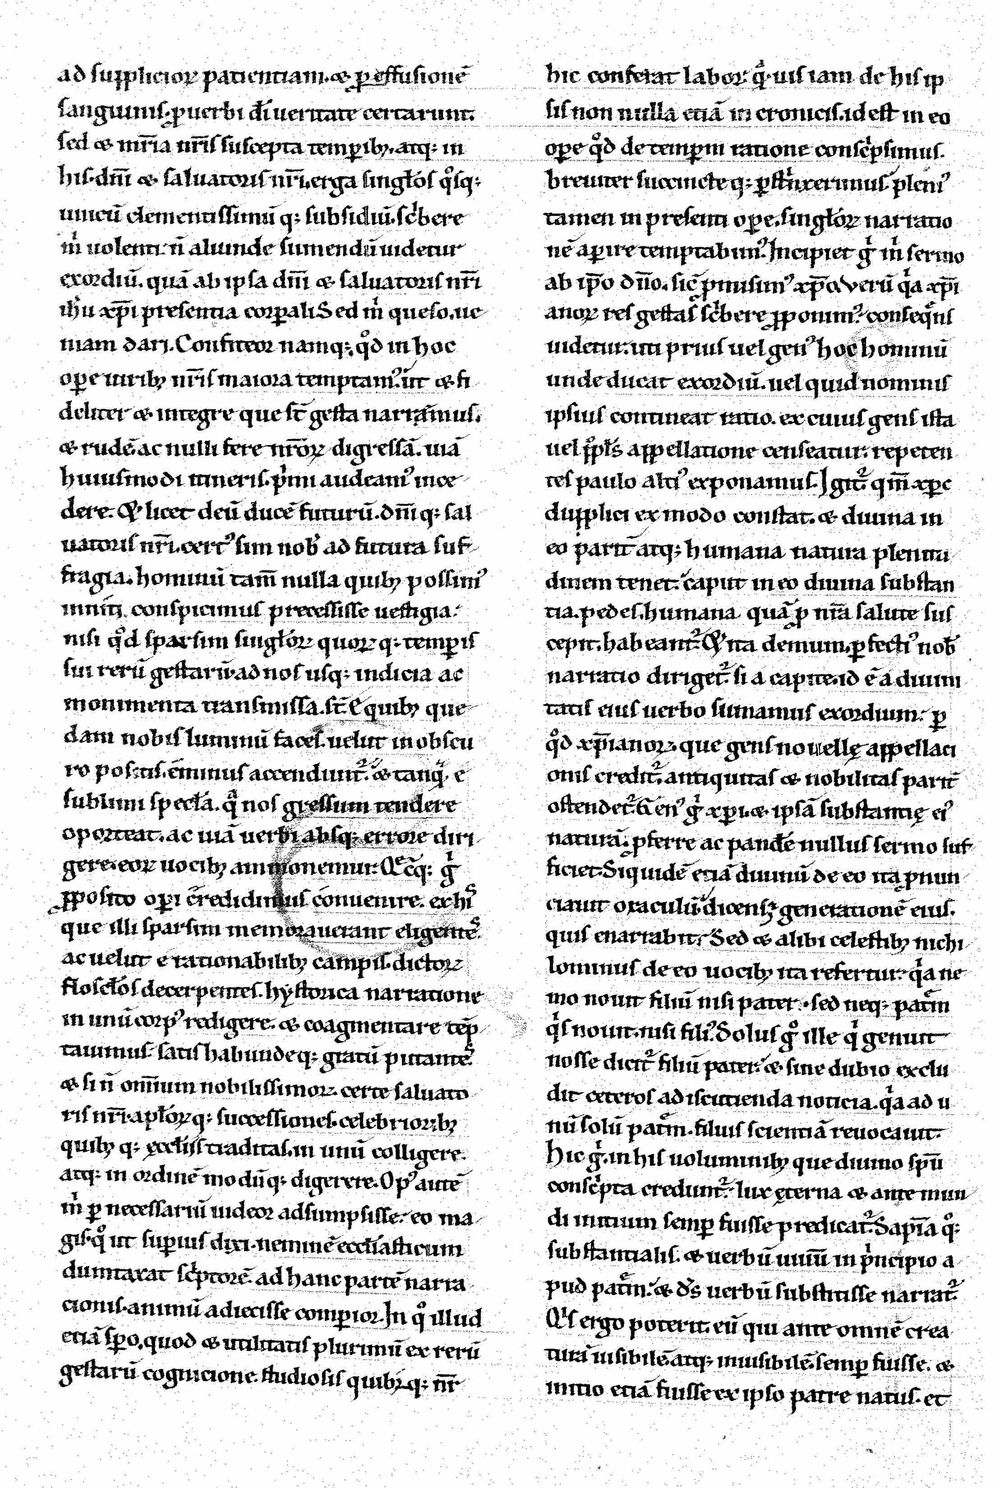 ad suppliciorꝝ patientiam. & ꝑ effusionē
sanguinis. ꝓ uerbi dī ueritate certarunt.
sed & mr̄ia nr̄is suscepta temꝑibꝫ. atqꝫ in
his. dn̄i & saluatoris nr̄i. erga singlos qͦsqꝫ
unicū clementissimū qꝫ subsidiū. scͥbere
mͥ uolenti. n̄ aliunde sumendū uidetur
exordiū. quā ab ipsa dn̄i & saluatoris nr̄i
ih̄u xp̄i presentia corꝑali. Sed mͥ queso. ue
niam dari. Confiteor namqꝫ. qͦd in hoc
oꝑe uiribꝫ nr̄is maiora temptamꝰ. ūt & fi
deliter & integre que st̄ gesta narramus.
& rudē ac nulli fere nr̄orꝝ digressā. uiā
huiusmodi itineris. pͥmi audeamꝰ ince
dere. Qͥ licet deū ducē futurū. dn̄i qꝫ sal
uatoris nr̄i. certꝰ sim nob̄ ad futura suf
fragia. hominū tam̄ nulla quibꝫ possimꝰ
inniti. conspicimus precessisse uestigia.
nisi qͦd sparsim singlorꝝ quorꝝ qꝫ temꝑis
sui rerū gestarū. ad nos usqꝫ indicia ac
monimenta transmissa. st̄ E quibꝫ que
dam nobis luminū faces. uelut in obscu
ro positis. eminus accendiunt̄. & tanqͣ e
sublimi specla. qͣ nos gressum tendere
oporteat. ac uiā uerbi absqꝫ errore diri
gere. eorꝝ uocibꝫ ammonemur. Qcͣqꝫ gͥ
ꝓposito oꝑi credidimus conuenire. ex hiͥs
que illi sparsim memorauerant eligentes.
ac uelut e rationabilibꝫ campis. dictorꝝ
flosclos decerpentes. hystorica narratione
in unū corpꝰ redigere. & coagmentare tēp
tauimus. satis habunde qꝫ gratū putantes.
& si n̄ om̄ium nobilissimorꝝ. certe saluato
ris nr̄i. aplorꝝ qꝫ successiones. celebrioribꝫ
quibꝫ qꝫ ęccl̄iis traditas. in unū colligere.
atqꝫ in ordinē modū qꝫ digerere. Opꝰ autē
mͥ ꝑ necessariū uideor adsumpsisse. eo ma
gis. qͦ ut superius dixi. neminē eccl̄iasticum
dumtaxat scͥptorē. ad hanc partē narra
cionis. animū adiecisse comperior. In qͦ illud
etiā sꝑo. quod & utilitatis plurimū ex rerū
gestarū cognicione. studiosis quibꝫ qꝫ nr̄
hic conferat labor. qͣuis iam de his ip
sis non nulla etiā in cronicis. id est in eo
oꝑe qͦd de temꝑm ratione conscͥpsimus.
breuiter succincte qꝫ ꝑstͥnxerimus. pleniꝰ
tamen in presenti oꝑe. singlorꝝ narratio
nē aꝑire temptabimꝰ. Incipiet gͥ mͥ sermo
ab ip̄o dn̄o. sic̄ ꝓmisimꝰ xp̄o. Verū qͣa xp̄i
anorꝝ res gestas scͥbere ꝓponimꝰ. conseqͥns
uidetur. uti prius uel genꝰ hoc hominū
unde ducat exordiū. uel quid nominis
ipsius contineat ratio. ex cuius gens ista
uel ppl̄s appellatione censeatur. repeten
tes paulo altiꝰ exponamus. Igit̄ qm̄ xp̄c
dupplici ex modo constat. & diuina in
eo parit̄ atqꝫ humana natura plenitu
dinem tenet. caput in eo diuina substan
tia. pedes. humana quā ꝓ nr̄a salute sus
cepit. habeant̄. Qͥ ita demum. ꝑfectꝰ nob̄
narratio diriget̄. si a capite. id ē a diuini
tatis eius uerbo sumamus exordium. ꝑ
qͦd xp̄ianorꝝ. que gens nouellę appellaci
onis credit̄. antiquitas & nobilitas parit̄
ostendet̄. Genꝰ gͥ xp̄i. & ipsā substantię eiꝰ
naturā. ꝓferre ac pandē nullus sermo suf
ficiet. Siquidē etiā diuinū de eo ita ꝓnun
ciauit oraculū. dicens. generationē eius.
quis enarrabit. Sed & alibi celestibꝫ nichi
lominus de eo uocibꝫ ita refertur. qͥa ne
mo nouit filiū nisi pater. sed neqꝫ patͬm
qͥs nouit. nisi filiꝰ. Solus gͦ ille qͥ genuit
nosse dicit̄ filiū pater. & sine dubio exclu
dit ceteros ad iscutienda noticia. qͥa ad u
nū solū patͬm. filius scientiā reuocauit.
Hic gͥ. in his uoluminibꝫ que diuino spū
conscͥpta credunt̄. lux ęterna & ante mun
di initium semꝑ fuisse predicat̄. Sapīa qͦꝫ
substantialis. & uerbū uiuū in pͥncipio a
pud patͬm. & ds̄ uerbū substitisse narrat̄.
Qͥs ergo poterit. eū qui ante omnē crea
turā uisibilē. atqꝫ inuisibilē. semꝑ fuisse. &
initio etiā fuisse ex ipso patre natus. et